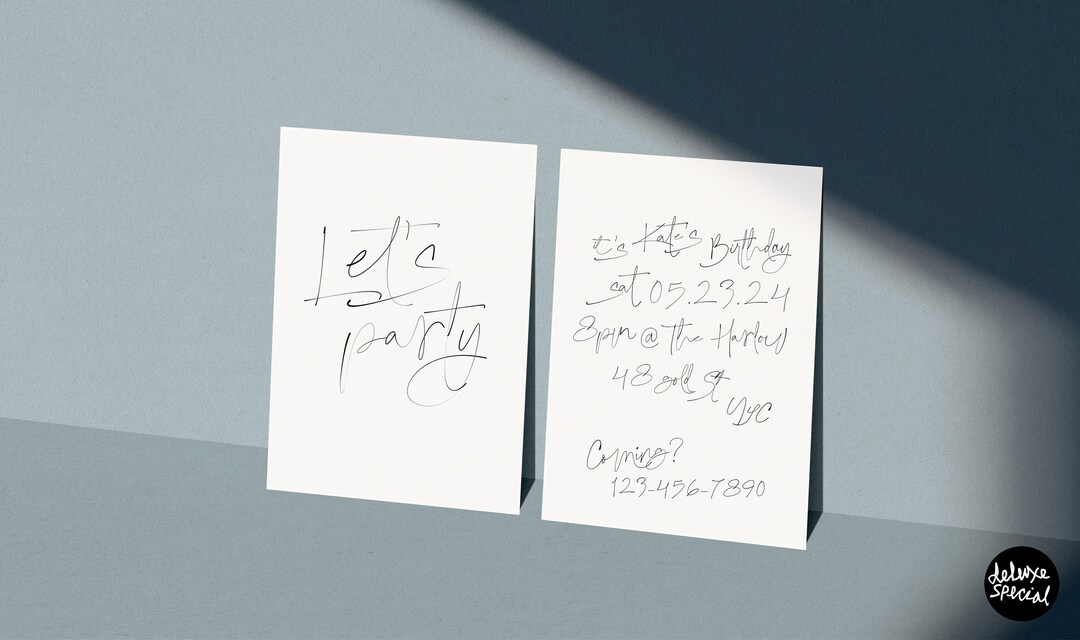 Let's
party
it's Kate's Birthday
sat 05.23.24
8pm @ The Harlow
48 gold St
NYC
Coming?
123-456-7890
deluxe
special